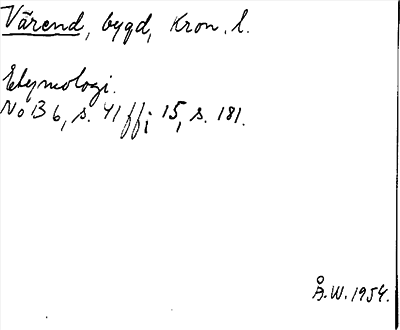 Värend, bygd, Kron. l.
Etymologi.
NoB 6, s. 41 ff; 15, s. 181.
Å.W. 1954.